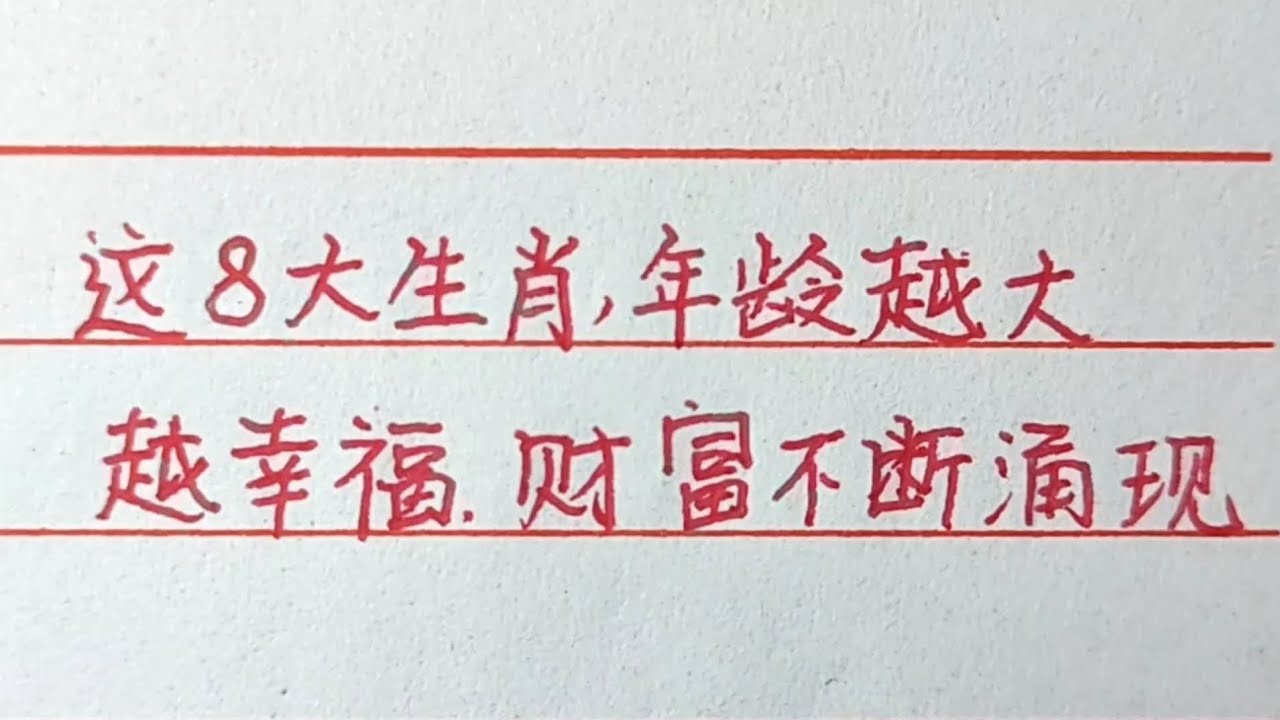 这8大生肖,年龄越大
越幸福.财富不断涌现